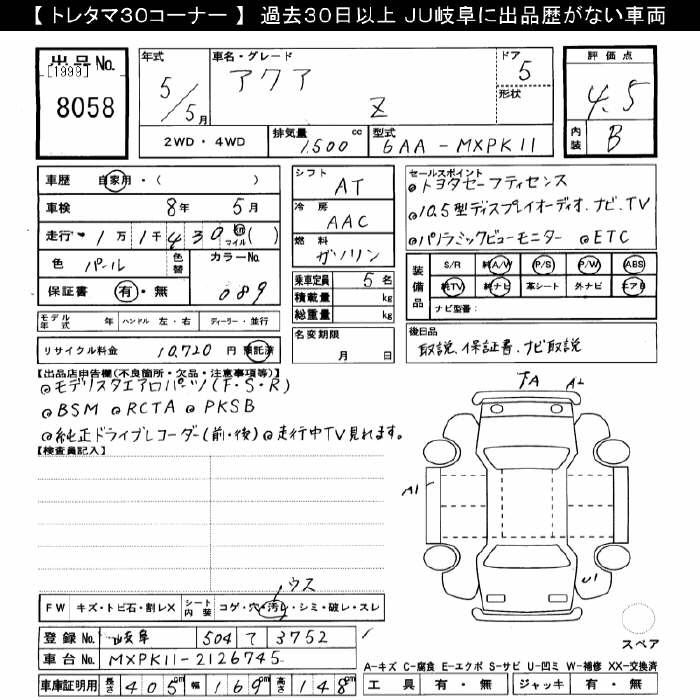 【 トレタマ30コーナー 】 過去30日以上 JU岐阜に出品歴がない車両
出品No.
【1999】
8058
年式
5/5月
車名・グレード
アクア
Z
ドア
5
形状
2WD・4WD
排気量
1,500 cc
型式
6AA-MXPK11
評価点
4.5
内装
B
車歴 自家用・( )
車検 8年 5月
走行 1万1千430 km マイル ( )
色 パール 色替 カラーNo.
089
保証書 有・無
モデル年式 年 ハンドル 左・右 ディーラー・並行
リサイクル料金 10,720円 預託済
シフト
AT
冷房
AAC
燃料
ガソリン
乗車定員 5名
積載量 kg
総重量 kg
名変期限
月 日
セールスポイント
◎トヨタセーフティセンス
◎10.5型ディスプレイオーディオ、ナビ、TV
◎パノラミックビューモニター ◎ETC
装備品
S/R 純A/W P/S P/W ABS
純TV 純ナビ 革シート 外ナビ エアB
ナビ型番:
後日品
取説、保証書、ナビ取説
【出品店申告欄(不良箇所・欠品・注意事項等)】
◎モデリスタエアロパーツ(F・S・R)
◎BSM ◎RCTA ◎PKSB
◎純正ドライブレコーダー(前・後) ◎走行中TV見れます。
【検査員記入】
A2
A1
U1
スペア
ウス
FW キズ・トビ石・割レX シート内装 コゲ・穴・汚レ・シミ・破レ・スレ
登録No. 岐阜 504 て 3752
車台No. MXPK11-2126745
車庫証明用 長さ 405cm 幅 169cm 高さ 148cm
A-キズ C-腐食 E-エクボ S-サビ U-凹ミ W-補修 XX-交換済
工具 有・無 ジャッキ 有・無